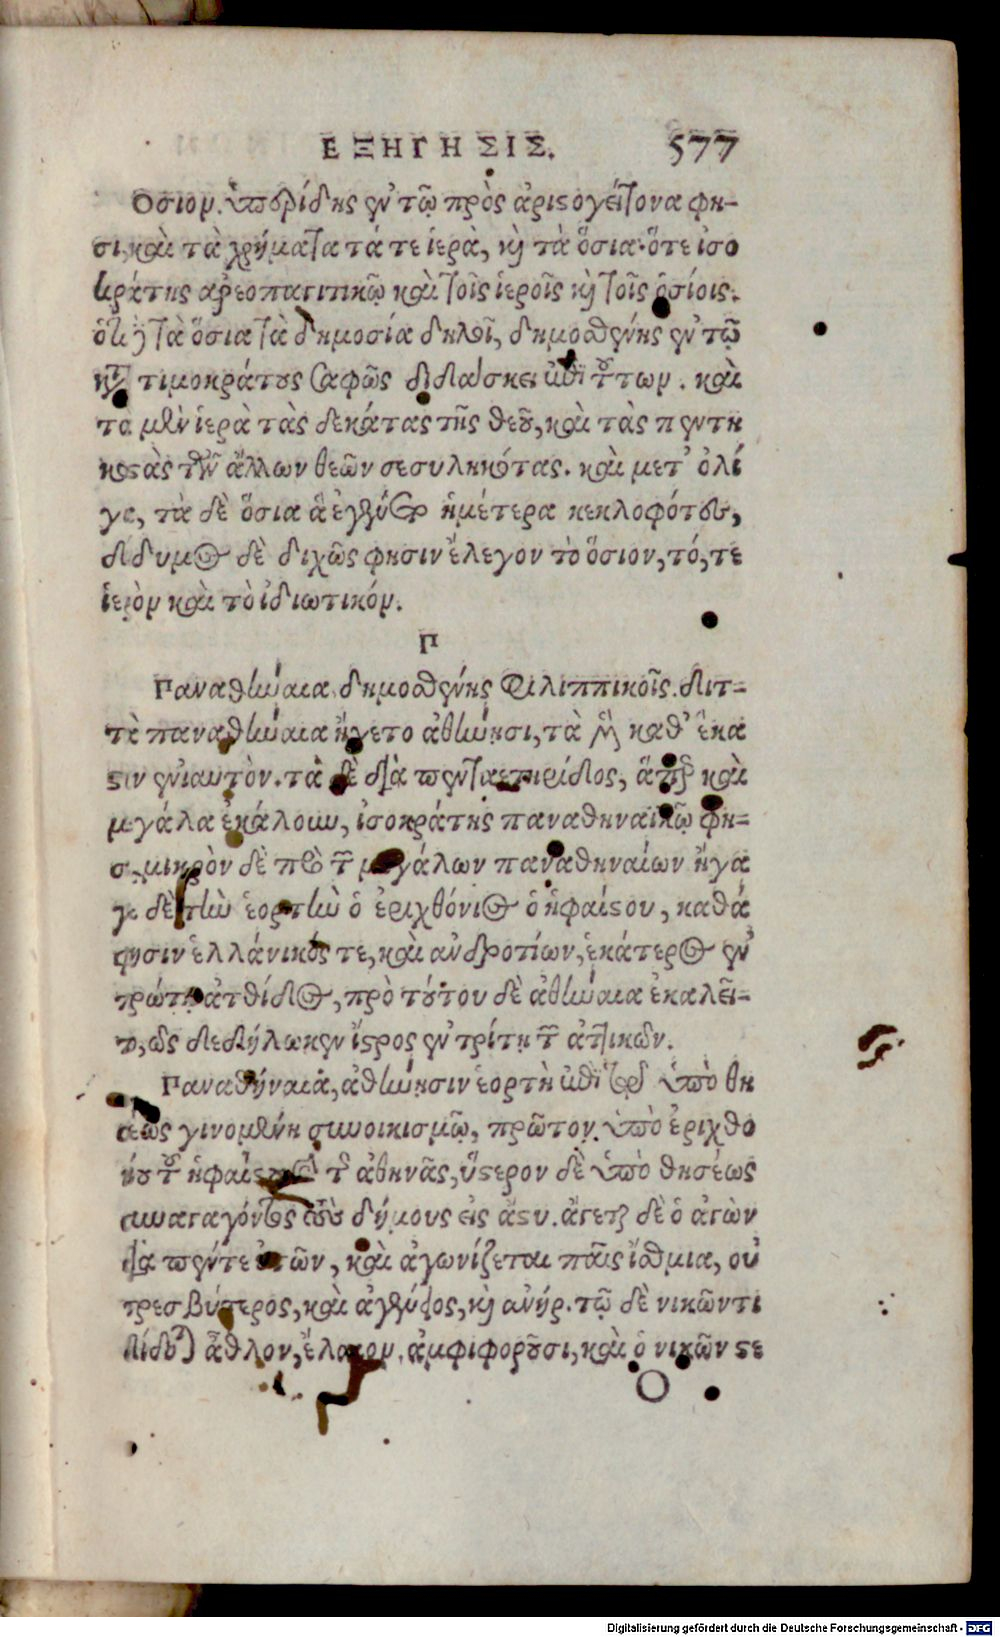 ΕΞΗΓΗΣΙΣ. 577
Οσιον. ὑπερίδης ἐν τῷ πρὸς ἀριστογείτονα φη-
σι, καὶ τὰ χρήματα τά τε ἱερὰ, καὶ τὰ ὅσια. ὅτε ἰσο
κράτης αρεοπαγιτικῷ καὶ τοῖς ἱεροῖς καὶ τοῖς ὁσίοις.
ὅτι τὰ ὅσια τὰ δημοσία δηλοῖ, δημοσθένης ἐν τῷ
κατὰ τιμοκράτους σαφῶς διδάσκει τῶν. καὶ
τὰ μὲν ἱερὰ τὰς δεκάτας τῆς θεοῦ, καὶ τὰς πεντη
κοστὰς τῶν ἄλλων θεῶν σεσυληκότας. καὶ μετ' ὀλί
γα, τὰ δὲ ὅσια ἃ ἐγένετο ἡμέτερα κεκλοφότας,
δίδυμος δὲ διχῶς φησιν ἔλεγον τὸ ὅσιον, τό, τε
ἱερὸν καὶ τὸ ἰδιωτικόν.
Π
Παναθήναια δημοσθένης Φιλιππικοῖς. διτ-
τὰ παναθήναια ἤγετο ἀθήνησι, τὰ μὲν καθ' ἕκα
στον ἐνιαυτὸν. τὰ δὲ διὰ πενταετηρίδος, ἅπερ καὶ
μεγάλα ἐκάλουν, ἰσοκράτης παναθηναϊκῷ φη-
σι, μικρὸν δὲ πρὸ τῶν μεγάλων παναθηναίων ἤγα
γε δὲ τὴν ἑορτὴν ὁ ἐριχθόνιος ὁ ἡφαίστου, καθά
φησιν ἑλλάνικός τε, καὶ ανδροτίων, ἑκάτερος ἐν
πρώτῃ ἀτθίδος, πρὸ τούτου δὲ ἀθήναια ἐκαλεῖ-
το, ὡς δεδήλωκεν ἴστρος ἐν τρίτῃ τῶν ἀττικῶν.
Παναθήναια, ἀθήνησιν ἑορτὴ ὑπὸ θη
σέως γινομένη συνοικισμῷ, πρῶτον ὑπὸ ἐριχθο
νίου τοῦ ἡφαίστου καὶ τῆς ἀθηνᾶς, ὕστερον δὲ ὑπὸ θησέως
συναγαγόντος τοὺς δήμους εἰς ἄστυ. ἄγεται δὲ ὁ ἀγὼν
διὰ πέντε ἐτῶν, καὶ ἀγωνίζεται παῖς ἴσθμια, οὐ
πρεσβύτερος, καὶ ἀγένειος, καὶ ανήρ. τῷ δὲ νικῶντι
δίδοται ἆθλον, ἔλαιον, ἀμφιφοροῦσι, καὶ ὁ νικῶν στε
Ο
Digitalisierung gefördert durch die Deutsche Forschungsgemeinschaft - DFG